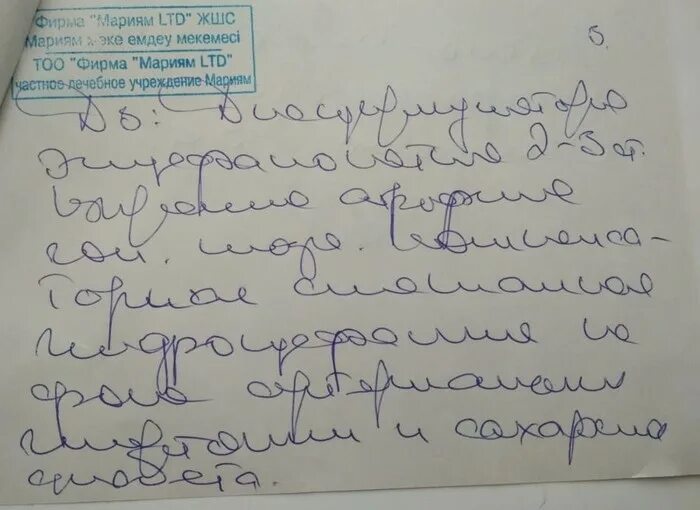 Фирма "Мариям LTD" ЖШС
Мариям жеке емдеу мекемесі
ТОО "Фирма "Мариям LTD"
частное лечебное учреждение Мариям
5.
Дз: Дисциркуляторная
энцефалопатия 2-3 ст.
Выраженная атрофия
гол. мозга. Компенса-
торная смешанная
гидроцефалия на
фоне артериальной
гипертонии и сахарного
диабета.